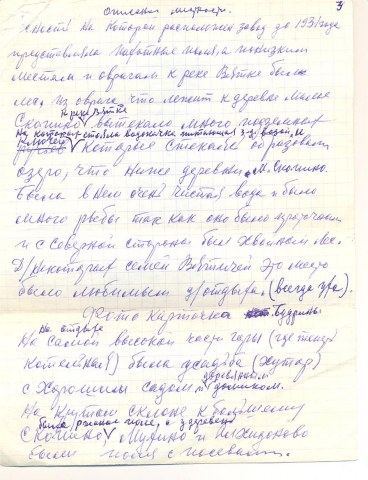 3
Описание местности.
Местность на которой расположен завод до 1931 года
представляла пахотные поля, а по низким
местам и оврагам к реке Вятке были
лес, из оврага, что лежит к деревне Малое
к реке Вятке
Скопино вытекало много подземных
на которых стояла водокачка питающая з-д водой.
ключей которые стекались образовали
озеро, что ниже деревни М. Скопино.
Была в нем очень чистая вода и было
много рыбы так как оно было проточным
и с северной стороны был хвойный лес.
Для некоторых семей Вятичей это место
было любимым д/отдыха. (всегда д/а).
Фото карточка
на отдыхе
На самой высокой части горы (где теперь
котельная) была усадьба (хутор)
деревянным
с хорошим садом и домиком.
На крутом склоне к Большому
было ржаное поле, а з деревень
Скопино, Мурино и Филипоново
были поля с посевами.